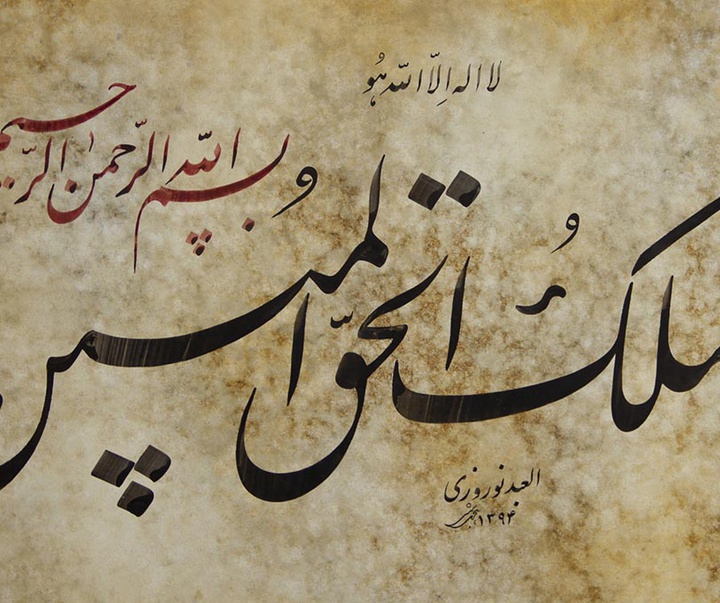 لا اله الّا الله هُو
بسم الله الرّحمن الرّحیم
الملكُ الحقّ المبین
العبد نوروزی
۱۳۹۴